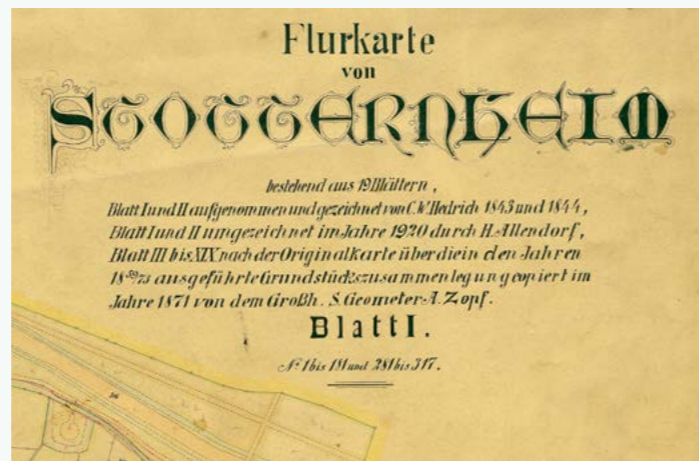 Flurkarte
von
STOTTERNHEIM
bestehend aus 19 Blättern,
Blatt I und II aufgenommen und gezeichnet von C. W. Hedrich 1843 und 1844,
Blatt I und II umgezeichnet im Jahre 1920 durch H. Allendorf,
Blatt III bis XIX nach der Originalkarte über die in den Jahren
18⁵⁹/₇₃ ausgeführte Grundstückszusammenlegung copiert im
Jahre 1871 von dem Großh. S. Geometer A. Zopf.
Blatt I.
Nº 1 bis 191 und 281 bis 317.